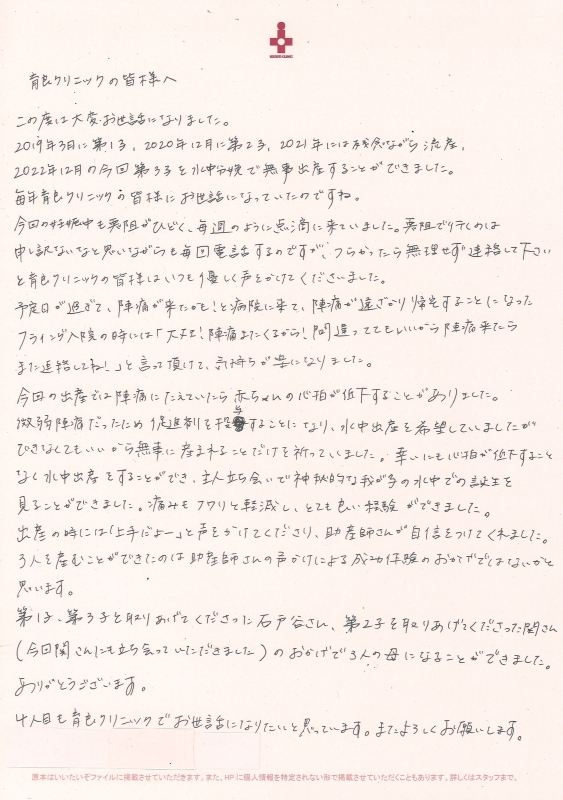 IKURYO CLINIC
育良クリニックの皆様へ
この度は大変お世話になりました。
2019年3月に第1子, 2020年12月に第2子, 2021年には残念ながら流産,
2022年12月の今回第3子を水中分娩で無事出産することができました。
毎年育良クリニックの皆様にお世話になっていたのですね。
今回の妊娠中も悪阻がひどく、毎週のように点滴に来ていました。悪阻で行くのは
申し訳ないなと思いながらも毎回電話するのですが、つらかったら無理せず連絡して下さい
と育良クリニックの皆様はいつも優しく声をかけてくださいました。
予定日が過ぎて、陣痛が来たかも!と病院に来て、陣痛が遠ざかり帰宅することになった
フライング入院の時には「大丈夫!陣痛またくるから!間違っててもいいから陣痛来たら
また連絡してね!」と言って頂けて、気持ちが楽になりました。
今回の出産では陣痛にたえていたら赤ちゃんの心拍が低下することがありました。
微弱陣痛だったため促進剤を投与することになり、水中出産を希望していましたが
できなくてもいいから無事に産まれることだけを祈っていました。幸いにも心拍が低下すること
なく水中出産をすることができ、主人立ち会いで神秘的な我が子の水中での誕生を
見ることができました。痛みもフワリと軽減し、とても良い経験ができました。
出産の時には「上手だよー」と声をかけてくださり、助産師さんが自信をつけてくれました。
3人を産むことができたのは助産師さんの声かけによる成功体験のおかげではないかと
思います。
第1子、第3子を取りあげてくださった石戸谷さん、第2子を取りあげてくださった関さん
(今回関さんにも立ち会っていただきました)のおかげで3人の母になることができました。
ありがとうございます。
4人目も育良クリニックでお世話になりたいと思っています。またよろしくお願いします。
原本はいいたいぞファイルに掲載させていただきます。また、HPに個人情報を特定されない形で掲載させていただくこともあります。詳しくはスタッフまで。